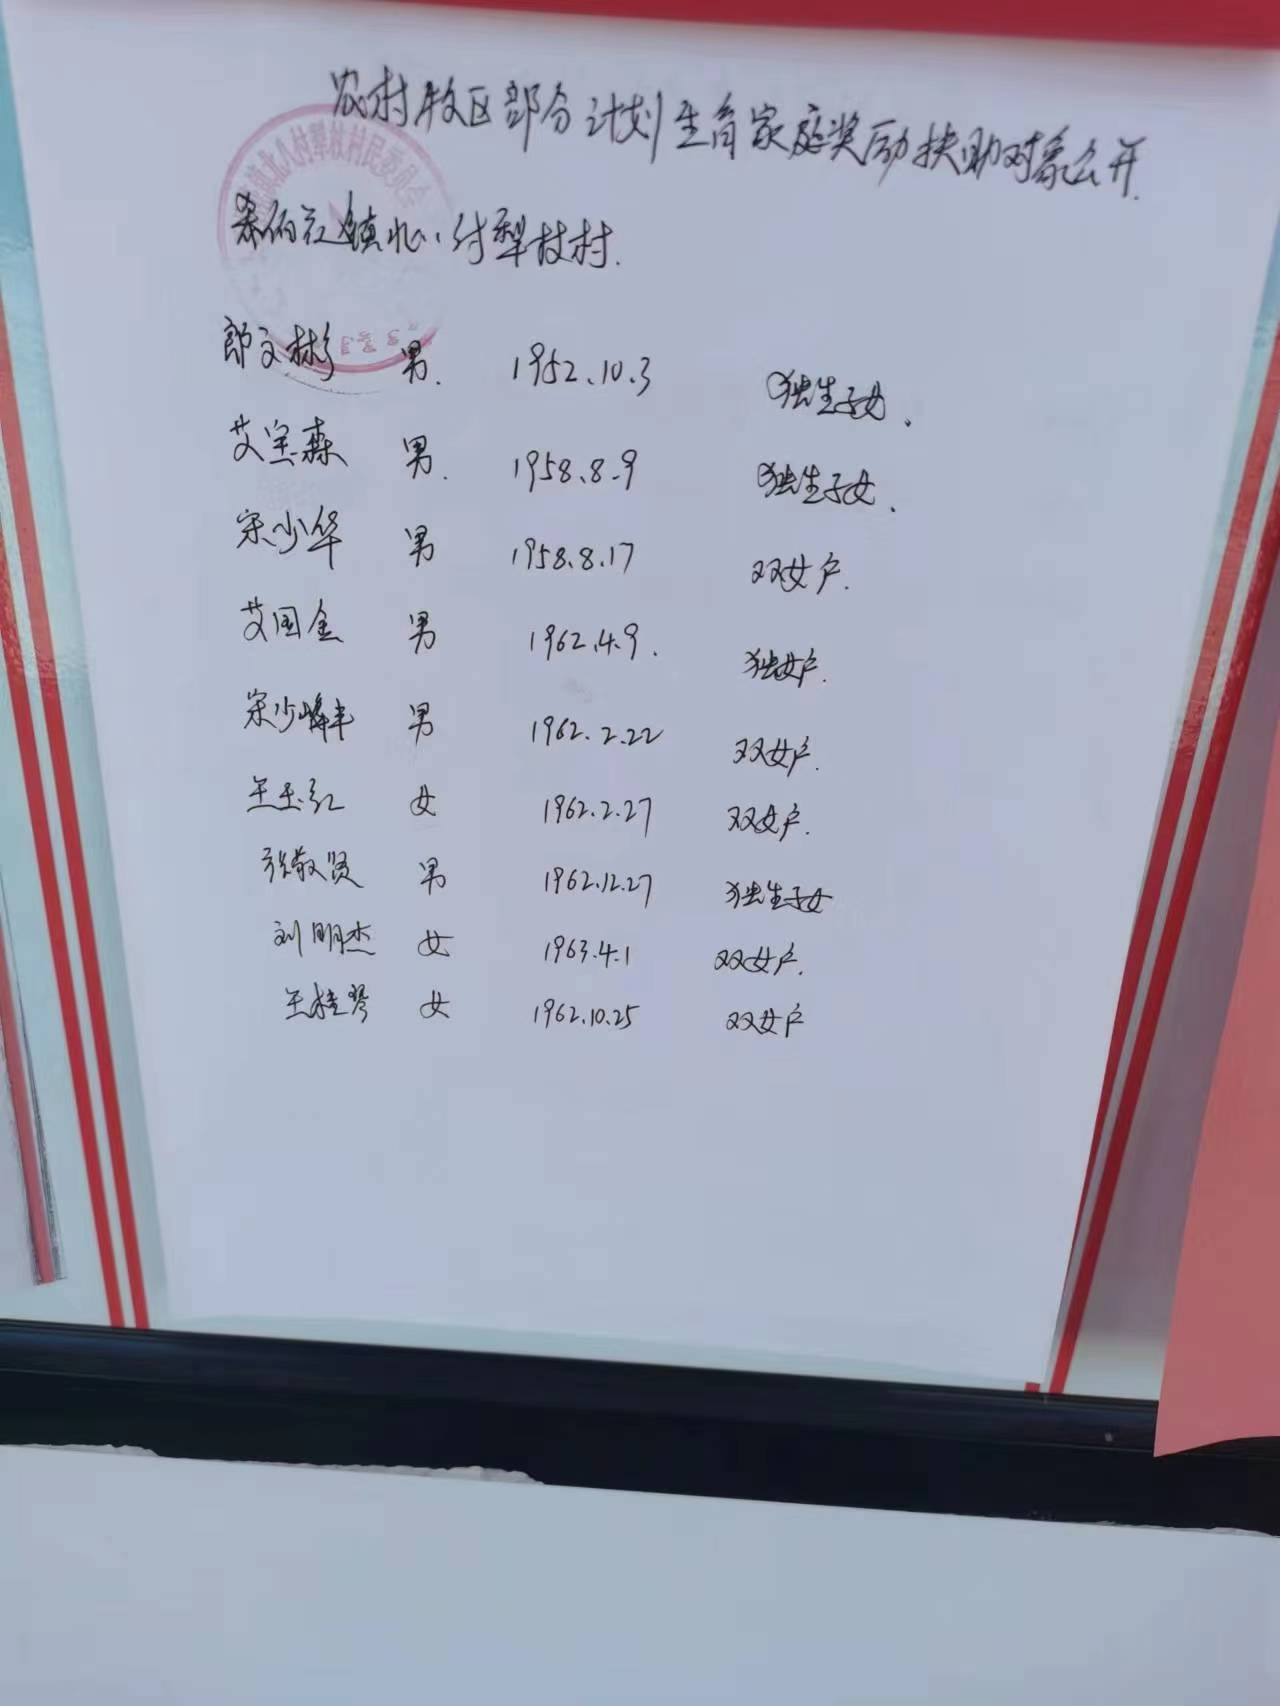 农村牧区部分计划生育家庭奖励扶助对象公开.
镇北八村犁杖村民委员会
镇北八付犁杖村.
郎文彬 男. 1952.10.3 独生子女.
艾宝森 男. 1958.8.9 独生子女.
宋少华 男 1958.8.17 双女户.
艾国金 男 1962.4.9. 独女户.
宋少峰 男 1962.2.22 双女户.
王玉红 女 1962.2.27 双女户.
张敬贤 男 1962.12.27 独生子女
刘明杰 女 1963.4.1 双女户.
王桂琴 女 1962.10.25 双女户